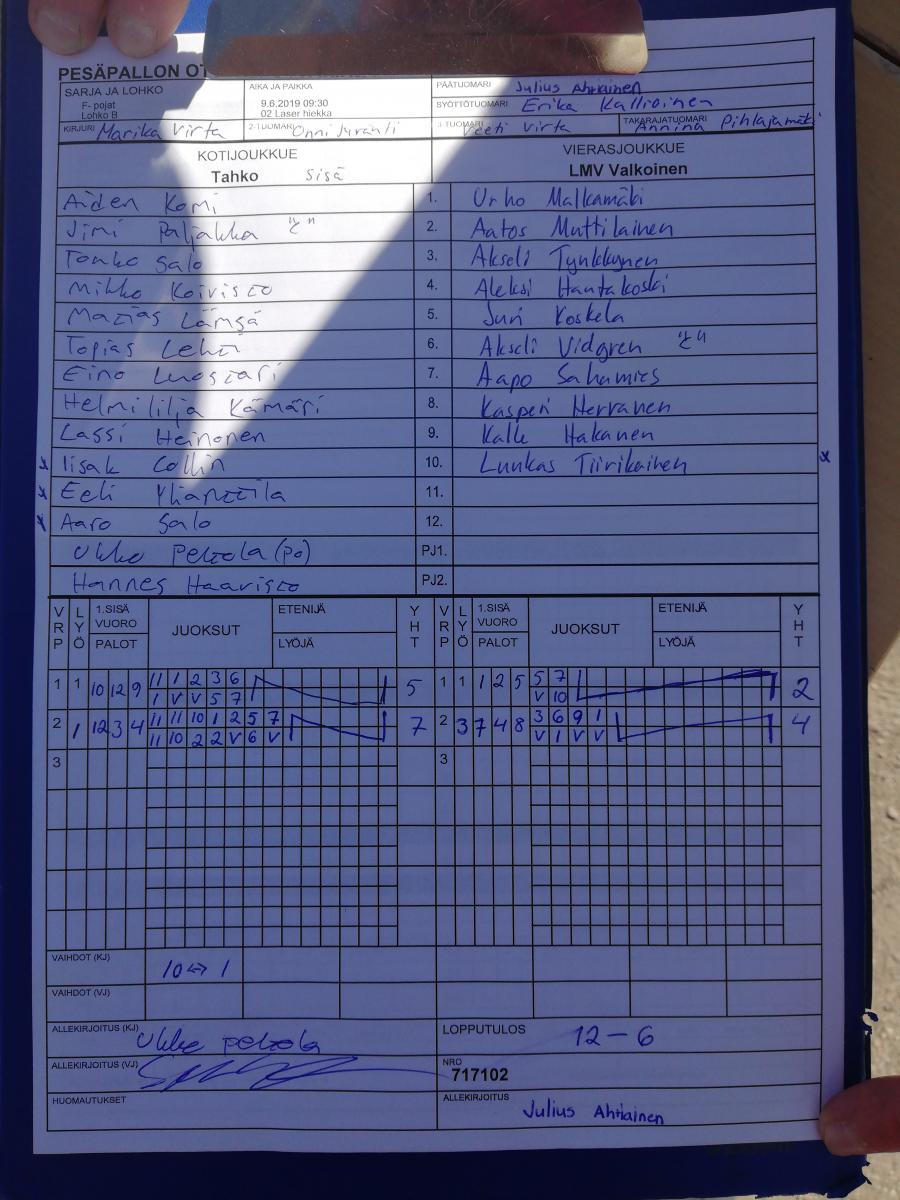 PESÄPALLON OT
SARJA JA LOHKO
F- pojat
Lohko B
AIKA JA PAIKKA
9.6.2019 09:30
02 Laser hiekka
PÄÄTUOMARI Julius Ahtiainen
SYÖTTÖTUOMARI Erika Kallioinen
KIRJURI Marika Virta
2-TUOMARI Onni
3-TUOMARI Veeti Virta
TAKARAJATUOMARI Annina Pihlajamäki
KOTIJOUKKUE
Tahko Sisä
VIERASJOUKKUE
LMV Valkoinen
Aiden Komi 1. Urho Malkamäki
Jimi Paljakka "L" 2. Aatos Muttilainen
Touko Salo 3. Akseli Tynkkynen
Mikko Koivisto 4. Aleksi Hautakoski
Matias Lämsä 5. Juri Koskela
Topias Lehti 6. Akseli Vidgren "L"
Eino Luostari 7. Aapo Sahamies
Helmililja Kämäri 8. Kasperi Herranen
Lassi Heinonen 9. Kalle Hakanen
x Iisak Collin 10. Luukas Tiirikainen x
x Eeli Ylianttila 11.
x Aaro Salo 12.
Ukko Peltola (po) PJ1.
Hannes Haavisto PJ2.
VRP LYÖ 1.SISÄ VUORO PALOT JUOKSUT ETENIJÄ LYÖJÄ YHT VRP LYÖ 1.SISÄ VUORO PALOT JUOKSUT ETENIJÄ LYÖJÄ YHT
1 1 10 12 9 11 1 2 3 6 5 1 1 1 2 5 5 7 2
1 V V 5 7 V 10
2 1 12 3 4 11 11 10 1 2 5 7 7 2 3 7 4 8 3 6 9 1 4
11 10 2 2 V 6 V V 1 V V
3 3
VAIHDOT (KJ) 10 ↔ 1
VAIHDOT (VJ)
ALLEKIRJOITUS (KJ) Ukko Peltola
LOPPUTULOS 12 – 6
ALLEKIRJOITUS (VJ)
NRO
717102
HUOMAUTUKSET
ALLEKIRJOITUS
Julius Ahtiainen